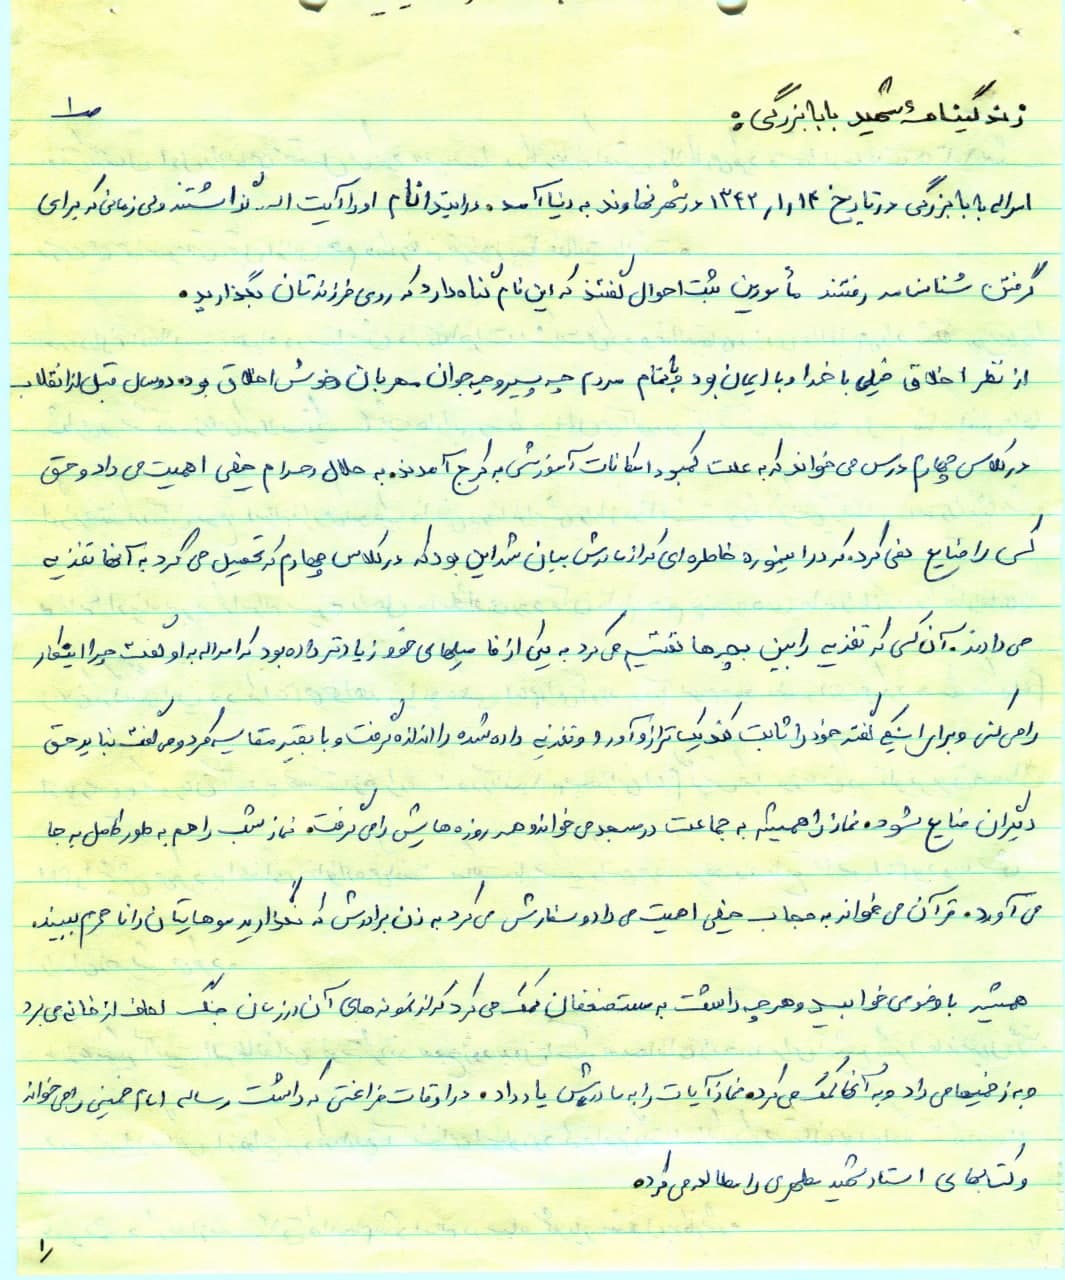 ص ۱
زندگینامهٔ شهید بابابزرگی:
اسداله بابابزرگی در تاریخ ۱۳۴۲/۱/۱۴ در شهر نهاوند به دنیا آمد. در ابتدا نام او را آیت اله گذاشتند ولی زمانی که برای
گرفتن شناسنامه رفتند مأمورین ثبت احوال گفتند که این نام گناه دارد که روی فرزندتان بگذارید.
از نظر اخلاق خیلی با خدا و با ایمان بود و با تمام مردم چه پیر و چه جوان مهربان و خوش اخلاق بود. دو سال قبل از انقلاب
در کلاس چهارم درس می خواند که به علت کمبود امکانات آموزشی به کرج آمدند. به حلال و حرام خیلی اهمیت می داد و حق
کسی را ضایع نمی کرد. که در اینمورد خاطره ای که از مادرش بیان شد این بود که در کلاس چهارم که تحصیل می کرد به آنها تغذیه
می دادند. آن کسی که تغذیه را بین بچه ها تقسیم می کرد به یکی از فامیلهای خود زیادتر داده بود که اسداله به او گفت چرا اینکار
را می کنی و برای اینکه گفته خود را ثابت کند یک ترازو آورد و تغذیه داده شده را اندازه گرفت و با بقیه مقایسه کرد و می گفت نباید حق
دیگران ضایع شود. نماز را همیشه به جماعت در مسجد می خواند و همه روزه هایش را می گرفت. نماز شب را هم به طور کامل به جا
می آورد. قرآن می خواند به حجاب خیلی اهمیت می داد و سفارش می کرد به زن برادرش که نگذارید موهایتان را نامحرم ببیند.
همیشه با وضو می خوابید و هر چه داشت به مستضعفان کمک می کرد که از نمونه های آن در زمان جنگ لحاف از خانه می برد
و به زخمیها می داد و به آنها کمک می کرد. نماز آیات را به مادرش یاد داد. در اوقات فراغتی که داشت رساله امام خمینی را می خواند
و کتابهای استاد شهید مطهری را مطالعه می کرد.
۱